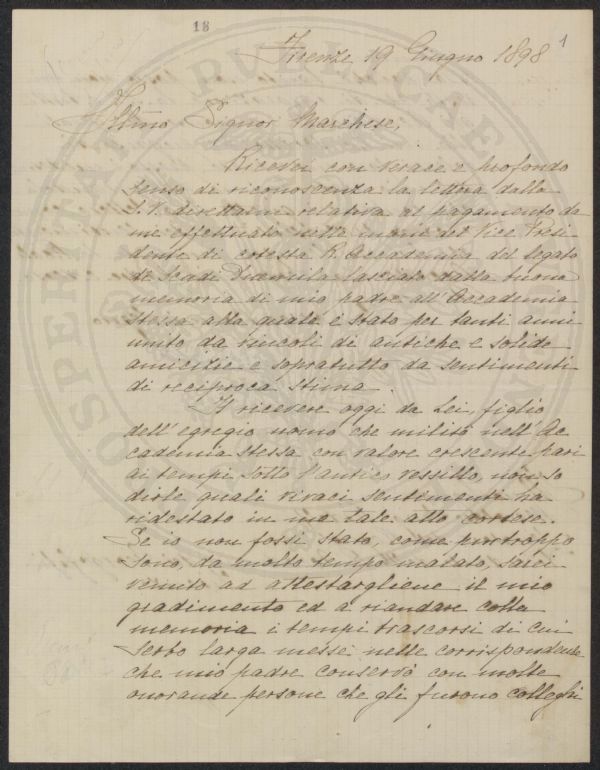 18
1
Firenze 19 Giugno 1898
Illmo Signor Marchese,
Ricevei con verace e profondo
senso di riconoscenza la lettera dalla
S. V. direttami relativa al pagamento da
me effettuato nelle mani del Vice Presi-
dente di cotesta R. Accademia del legato
di Scudi Duemila lasciato dalla buona
memoria di mio padre all'Accademia
stessa alla quale è stato per tanti anni
unito da vincoli di antiche e solide
amicizie e sopratutto da sentimenti
di reciproca stima.
Il ricevere oggi da Lei, figlio
dell'egregio uomo che militò nell'Ac
cademia stessa con valore crescente pari
ai tempi sotto l'antico vessillo, non so
dirle quali vivaci sentimenti ha
ridestato in me tale atto cortese.
Se io non fossi stato, come purtroppo
sono, da molto tempo malato, sarei
venuto ad attestargliene il mio
gradimento ed a riandare colla
memoria i tempi trascorsi di cui
serbo larga messe nelle corrispondenze
che mio padre conservò con molte
onorande persone che gli furono colleghi
PROSPERITATI PUBLICAE